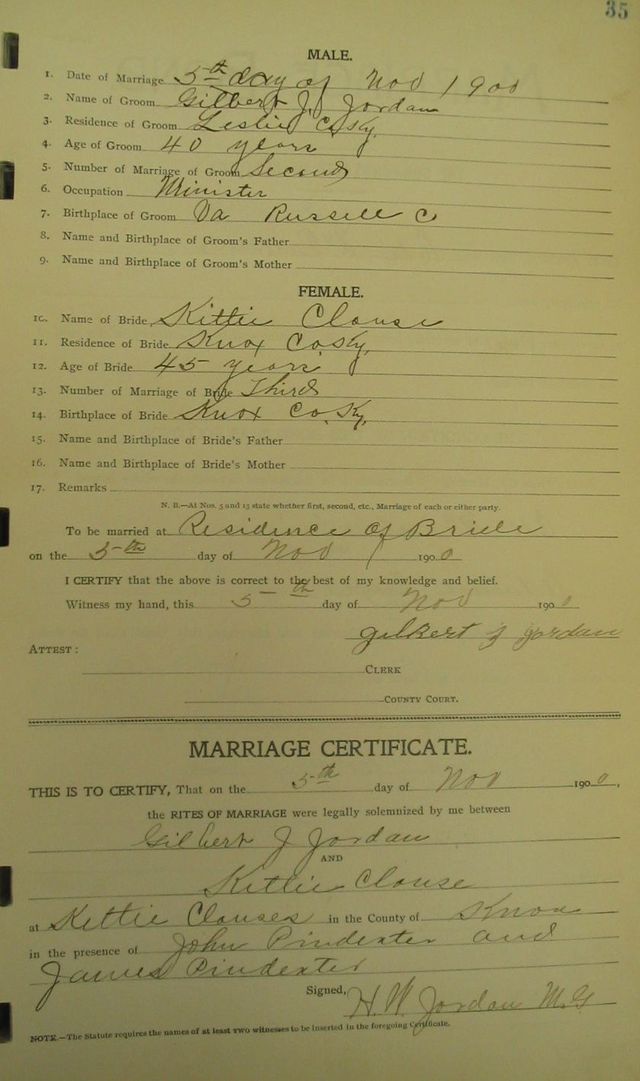 35
MALE.
1. Date of Marriage 5th day of Nov 1900
2. Name of Groom Gilbert J. Jordan
3. Residence of Groom Leslie Co Ky.
4. Age of Groom 40 years
5. Number of Marriage of Groom Second
6. Occupation Minister
7. Birthplace of Groom Va Russell C
8. Name and Birthplace of Groom's Father
9. Name and Birthplace of Groom's Mother
FEMALE.
10. Name of Bride Kittie Clouse
11. Residence of Bride Knox Co. Ky,
12. Age of Bride 45 years.
13. Number of Marriage of Bride Third
14. Birthplace of Bride Knox Co. Ky,
15. Name and Birthplace of Bride's Father
16. Name and Birthplace of Bride's Mother
17. Remarks
N. B.—At Nos. 5 and 13 state whether first, second, etc., Marriage of each or either party.
To be married at Residence of Bride
on the 5th day of Nov 1900
I CERTIFY that the above is correct to the best of my knowledge and belief.
Witness my hand, this 5th day of Nov 1900
Gilbert J Jordan
ATTEST:
CLERK
COUNTY COURT.
MARRIAGE CERTIFICATE.
THIS IS TO CERTIFY, That on the 5th day of Nov 1900,
the RITES OF MARRIAGE were legally solemnized by me between
Gilbert J Jordan
AND
Kittie Clouse
at Kettie Clouses in the County of Knox
in the presence of John Pindexter and
James Pindexter
Signed, H. W. Jordan M.G
NOTE.—The Statute requires the names of at least two witnesses to be inserted in the foregoing Certificate.